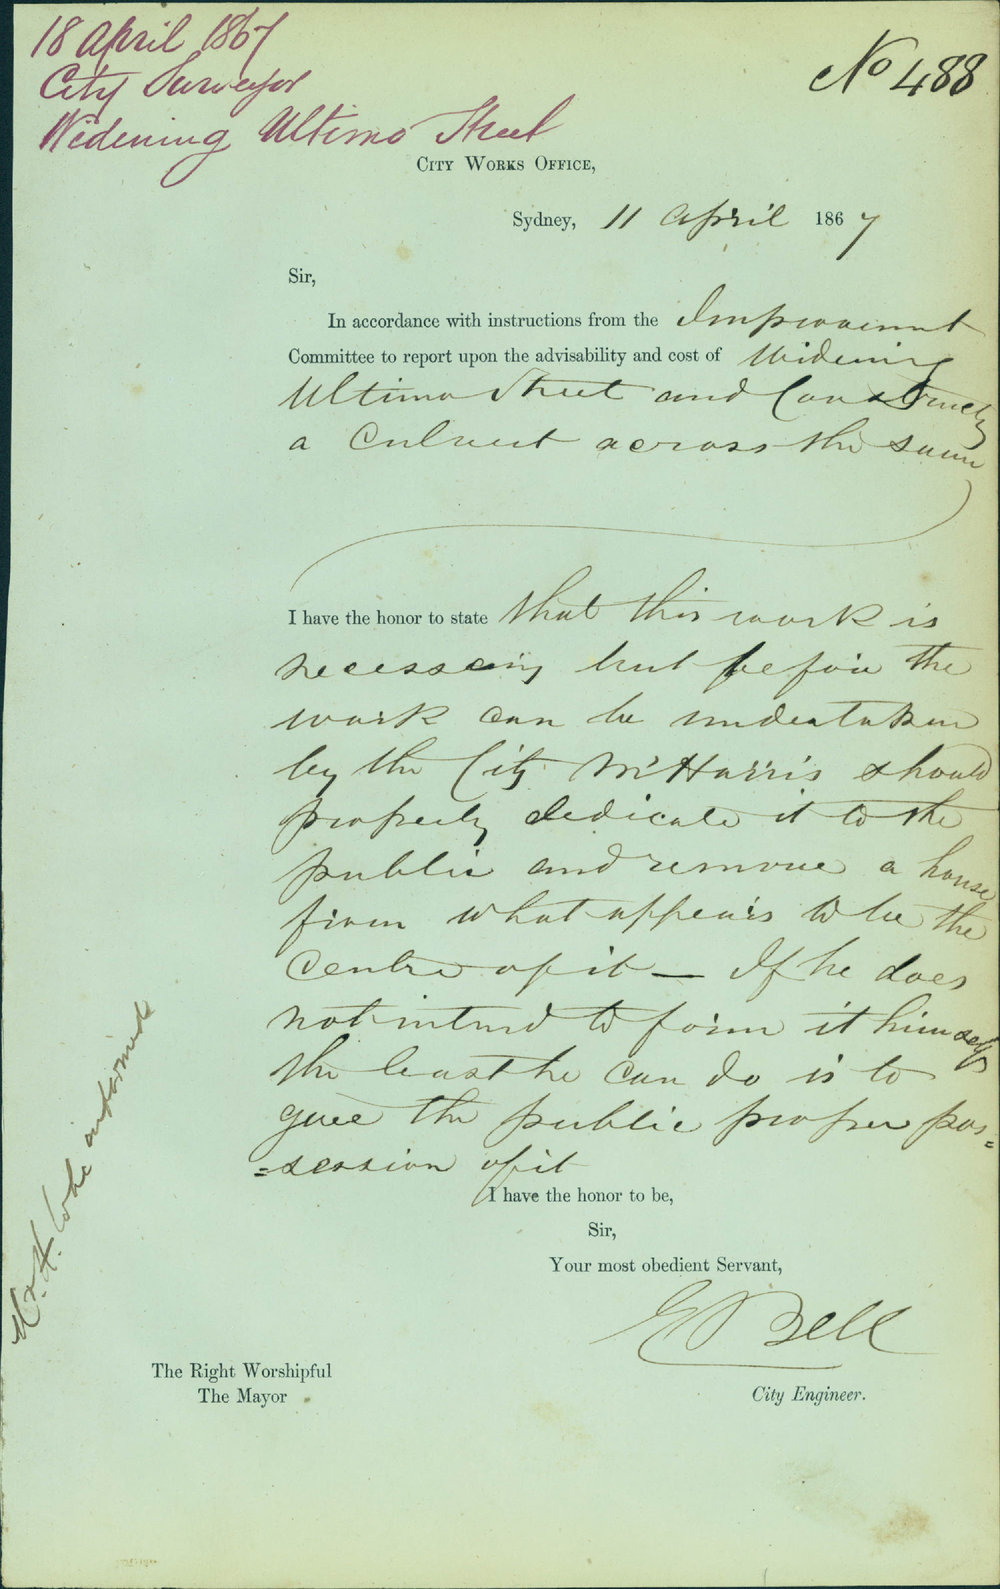 18 April 1867
City Surveyor
Widening Ultimo Street
No 488
City Works Office,
Sydney, 11 April 1867
Sir,
In accordance with instructions from the Improvement
Committee to report upon the advisability and cost of Widening
Ultimo Street and Constructg
a Culvert across the same
I have the honor to state that this work is
necessary but before the
work can be undertaken
by the City Mr Harris should
properly dedicate it to the
public and remove a house
from what appears to be the
Centre of it — If he does
not intend to form it himself
the least he can do is to
give the public proper pos=
=session of it
I have the honor to be,
Sir,
Your most obedient Servant,
E Bell
City Engineer.
The Right Worshipful
The Mayor
Mr. H. informed